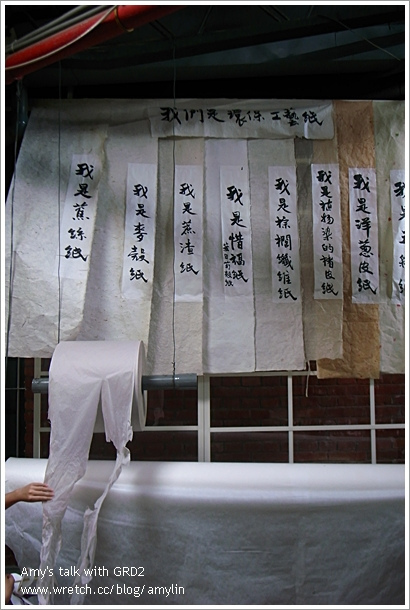 我們是環保工藝紙
我是蕉絲紙
我是麥殼紙
我是蔗渣紙
我是惜福紙
我是棕櫚纖維紙
我是植物染的楮皮紙
我是洋蔥皮紙
我是
Amy's talk with GRD2
www.wretch.cc/blog/amylin